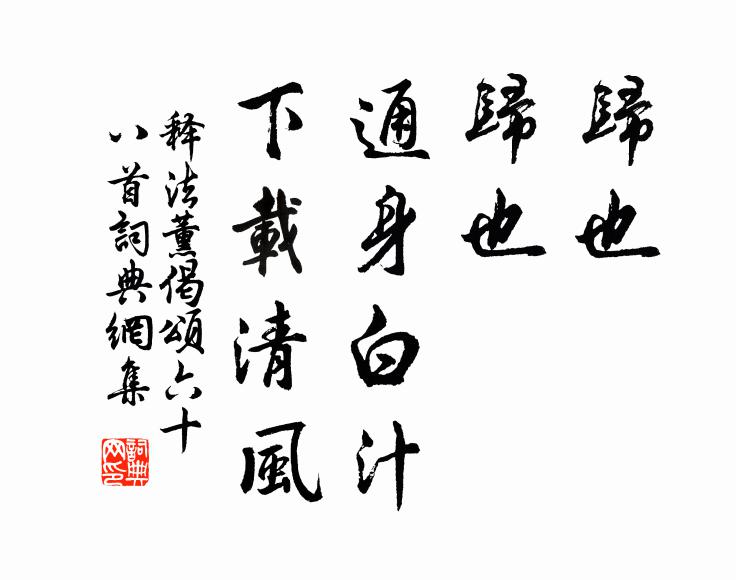 歸也
歸也
通身白汁
下載清風
釋法薰偈頌六十
八首詞典網集
詞典
网印